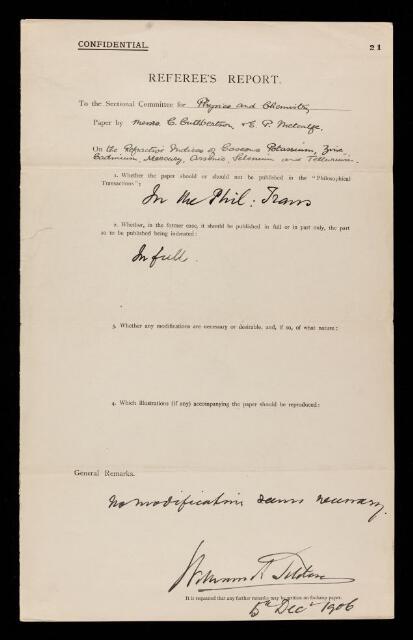 CONFIDENTIAL.
21
REFEREE'S REPORT.
To the Sectional Committee for Physics and Chemistry
Paper by Messrs C. Cuthbertson, & E. P. Metcalfe.
On the Refractive Indices of Gaseous Potassium, Zinc,
Cadmium, Mercury, Arsenic, Selenium and Tellurium.
1. Whether the paper should or should not be published in the "Philosophical
Transactions":
In the Phil: Trans
2. Whether, in the former case, it should be published in full or in part only, the part
not to be published being indicated:
In full.
3. Whether any modifications are necessary or desirable, and, if so, of what nature:
4. Which illustrations (if any) accompanying the paper should be reproduced:
General Remarks.
No modification seems necessary.
William A. Tilden
It is requested that any further remarks may be written on foolscap paper.
5th Decr 1906